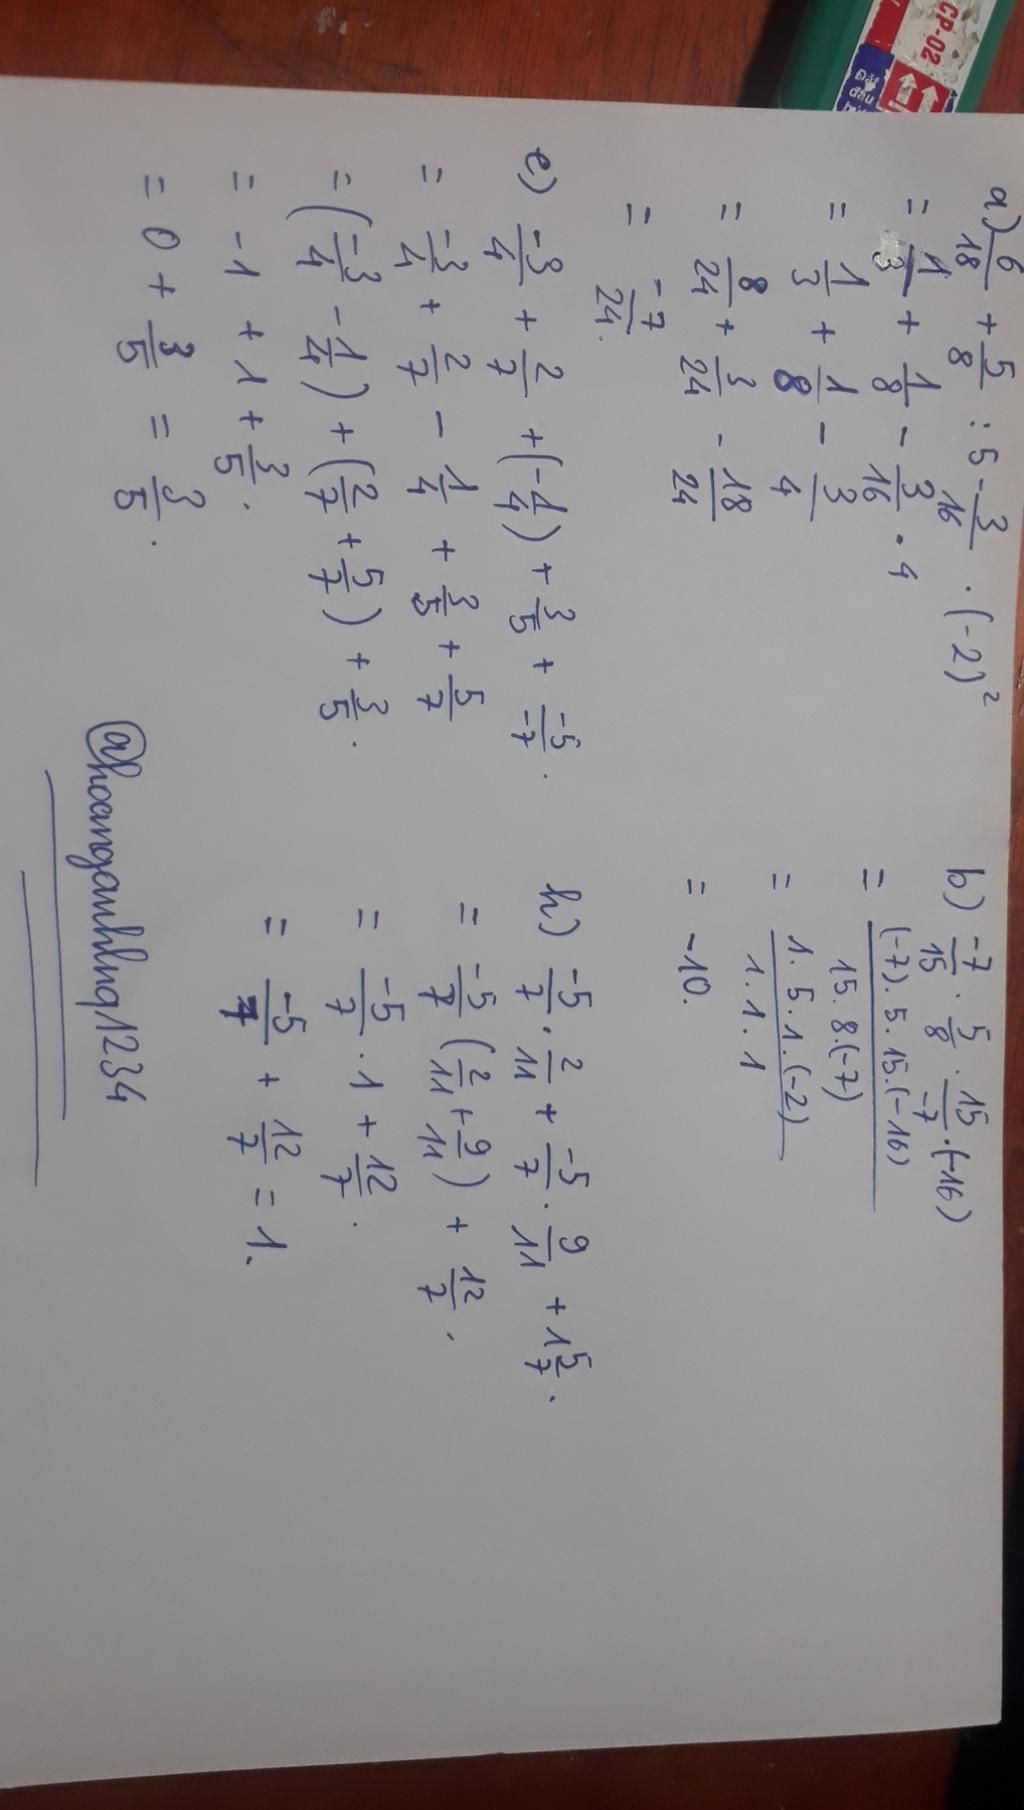 a) 6/18 + 5/8 : 5 - 3/16 . (-2)²
= 1/3 + 1/8 - 3/16 . 4
= 1/3 + 1/8 - 3/4
= 8/24 + 3/24 - 18/24
= -7/24.
e) -3/4 + 2/7 + (-1/4) + 3/5 + -5/-7.
= -3/4 + 2/7 - 1/4 + 3/5 + 5/7
= (-3/4 - 1/4) + (2/7 + 5/7) + 3/5.
= -1 + 1 + 3/5.
= 0 + 3/5 = 3/5.
b) -7/15 . 5/8 . 15/-7 . (-16)
= (-7). 5. 15. (-16) / 15. 8. (-7)
= 1. 5. 1. (-2) / 1. 1. 1
= -10.
h) -5/7 . 2/11 + -5/7 . 9/11 + 1 5/7.
= -5/7 (2/11 + 9/11) + 12/7.
= -5/7 . 1 + 12/7.
= -5/7 + 12/7 = 1.
@hoanganhlnq1234
CP-02
Đắt
đầu